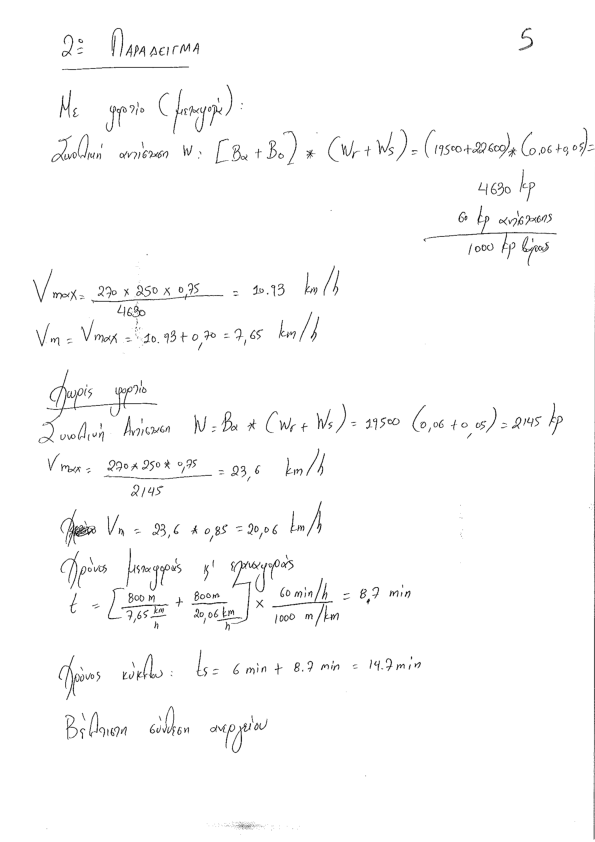 2ο ΠΑΡΑΔΕΙΓΜΑ
5
Με φορτίο (μεταφορά):
Συνολική αντίσταση W: [Bα + Bο] * (Wr + Ws) = (19500+22600)*(0,06+0,05)=
4630 kp
60 kp αντίστασης
1000 kp βάρους
Vmax = 270 x 250 x 0,75 / 4630 = 10.93 km/h
Vm = Vmax = 10.93+0,70 = 7,65 km/h
Χωρίς φορτίο
Συνολική Αντίσταση W = Bα * (Wr + Ws) = 19500 (0,06+0,05) = 2145 kp
Vmax = 270*250*0,75 / 2145 = 23,6 km/h
Vm = 23,6 * 0,85 = 20,06 km/h
Χρόνος μεταφοράς κ' επαναφοράς
t = [800 m / 7,65 km/h + 800m / 20,06 km/h] x 60 min/h / 1000 m/km = 8.7 min
Χρόνος κύκλου: ts = 6 min + 8.7 min = 14.7 min
Βέλτιστη σύνθεση συνεργείου